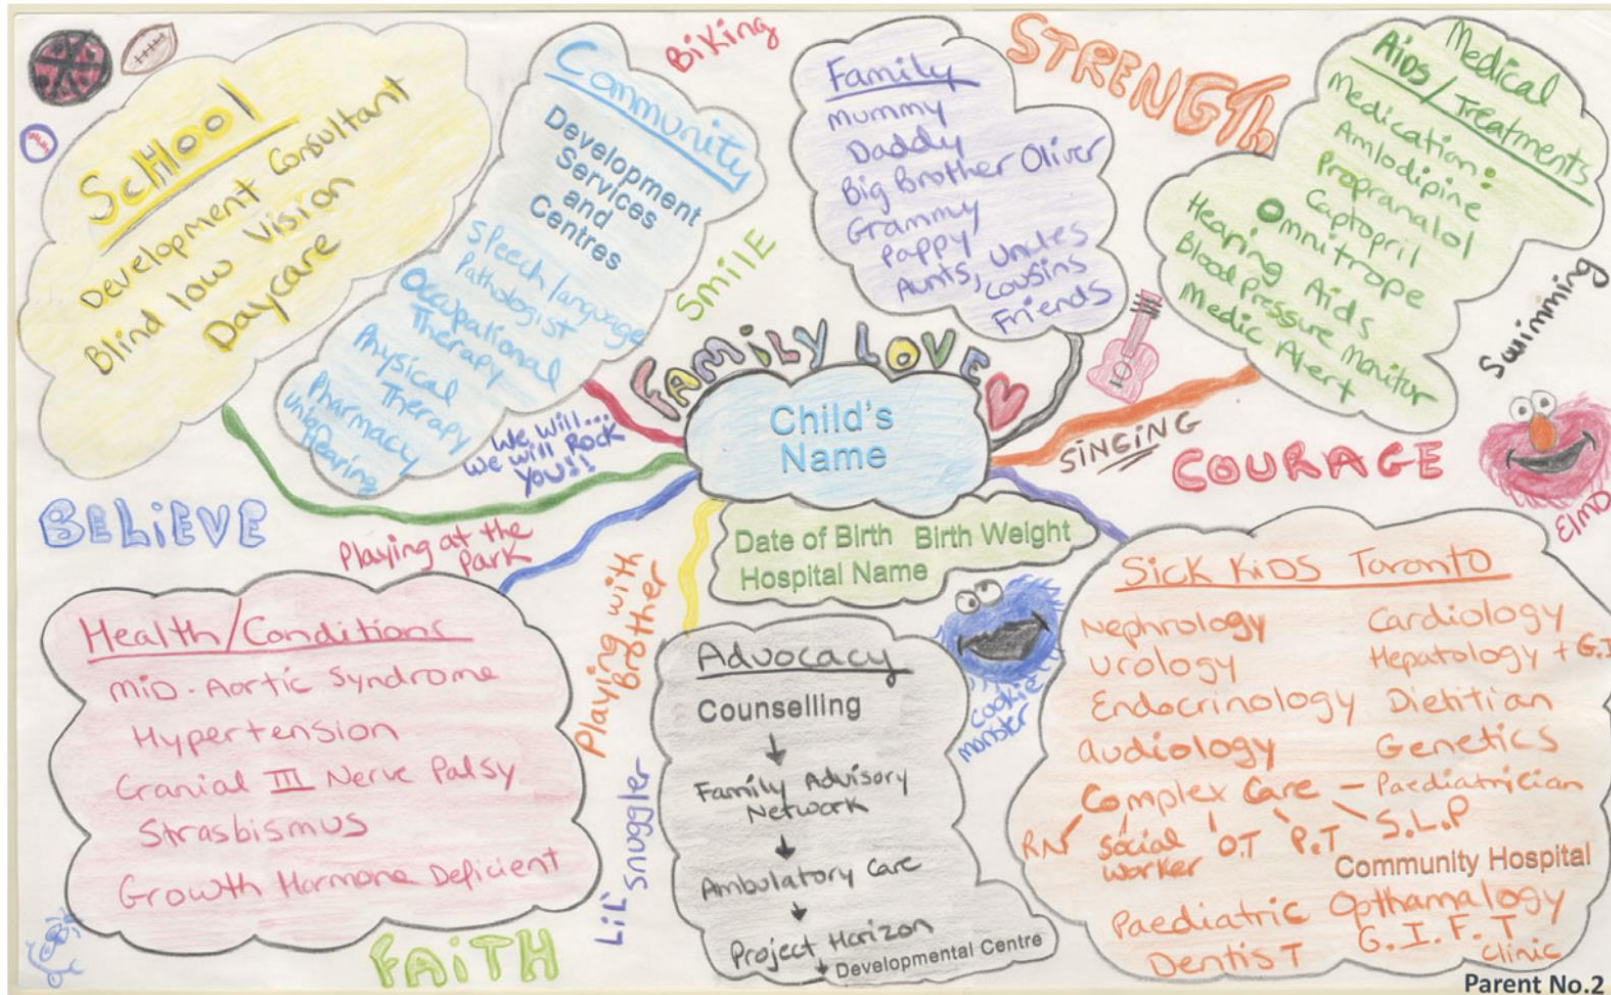 School
Development Consultant
Blind low vision
Daycare
Community
Development
Services
and
Centres
Speech language
Pathologist
Occupational
Therapy
Physical
Therapy
Pharmacy
Union
Hearing
Biking
Smile
Family
Mummy
Daddy
Big Brother Oliver
Grammy
Pappy
Aunts, Uncles
Cousins
Friends
STRENGTh
Medical
Aids/Treatments
Medication:
Amlodipine
Propranalol
Captopril
Omnitrope
Hearing Aids
Blood Pressure Monitor
Medic Alert
Swimming
FAMiLY LOVE
Child's
Name
Date of Birth Birth Weight
Hospital Name
We Will...
We will Rock
You!!
SiNGiNG
COURAGE
Elmo
BELiEVE
Playing at the
Park
Playing with
Brother
Health/Conditions
MiD-Aortic Syndrome
Hypertension
Cranial III Nerve Palsy
Strasbismus
Growth Hormone Deficient
FAiTH
Lil' Snuggler
Advocacy
Counselling
Family Advisory
Network
Ambulatory Care
Project Horizon
Developmental Centre
Cookie
monster
Sick KiDS Toronto
Nephrology Cardiology
Urology Hepatology + G.I
Endocrinology Dietitian
Audiology Genetics
Complex Care – Paediatrician
RN Social Worker O.T P.T S.L.P
Community Hospital
Paediatric Opthamalogy
Dentist G.I.F.T
Clinic
Parent No.2